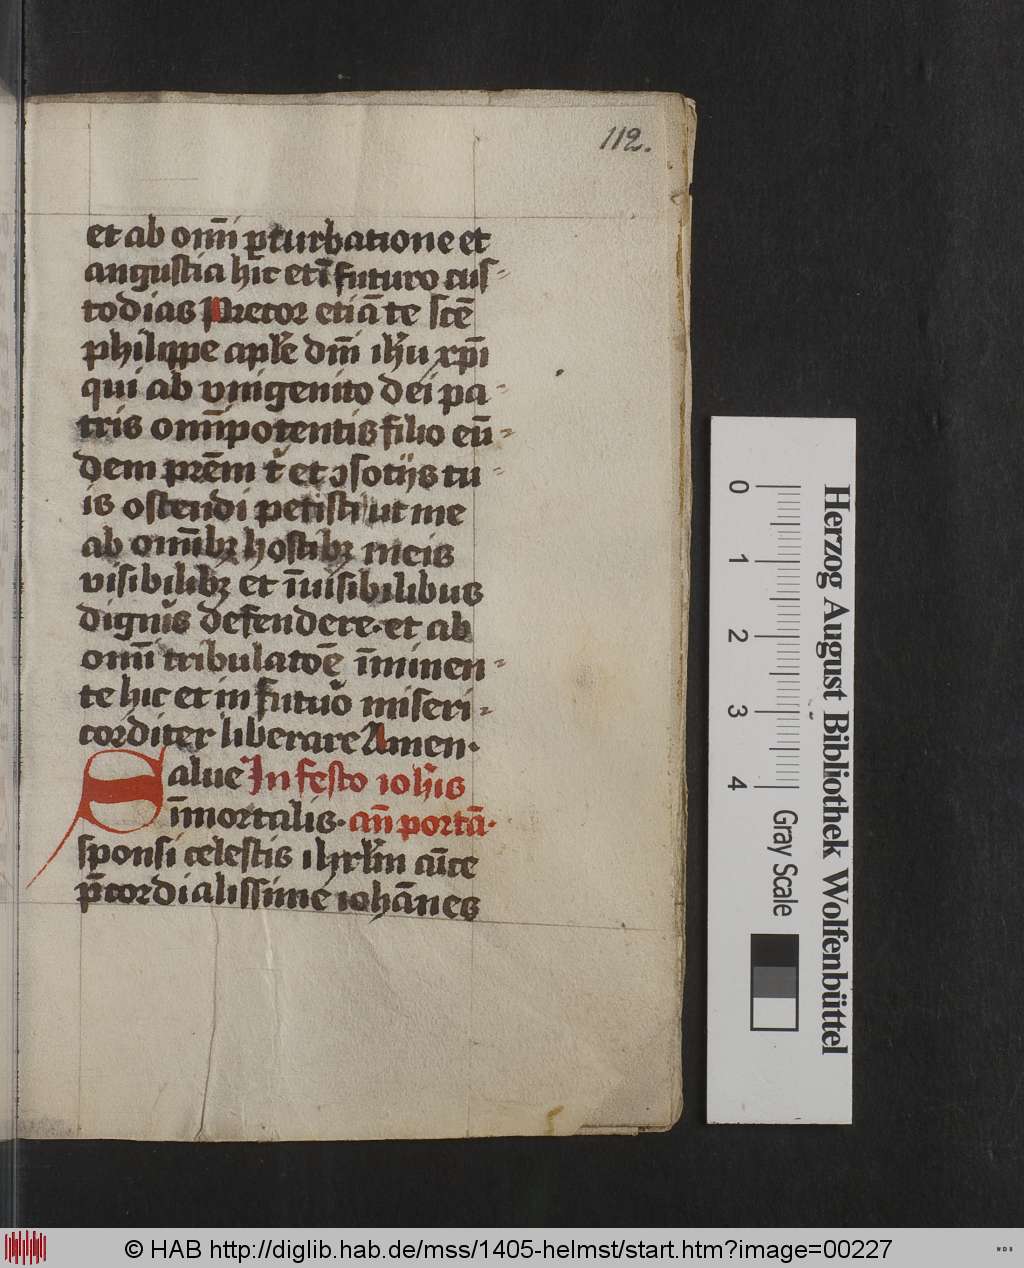 112.
et ab om̄i ꝑturbatione et
angustia hic et ī futuro cus⸗
todias Precor etiā te sctē
philippe aplē dn̄i ihū xp̄i
qui ab vnigenito dei pa⸗
tris omīpotentis filio eū⸗
dem prēm t' et ꝯsotijs tu⸗
is ostendi petisti ut me
ab omībꝫ hostibꝫ meis
visibilibꝫ et īuisibilibus
digneris defendere · et ab
omī tribulatōe īminen⸗
te hic et in futuro miseri⸗
corditer liberare Amen ·
Salue In festo ioh̄is
īmortalis · an̄ portā ·
sponsi celestis ihr̄lm ciūce
p̄cordialissime iohānes
0 1 2 3 4
Gray Scale
Herzog August Bibliothek Wolfenbüttel
© HAB http://diglib.hab.de/mss/1405-helmst/start.htm?image=00227